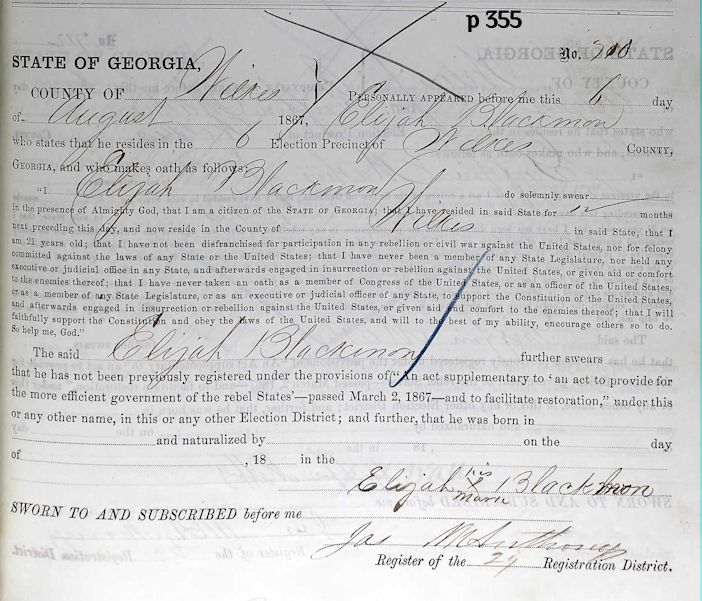 p 355
No. 700
STATE OF GEORGIA,
COUNTY OF Wilkes PERSONALLY APPEARED before me this 6 day
of August 1867, Elijah Blackmon
who states that he resides in the 6 Election Precinct of Wilkes COUNTY,
GEORGIA, and who makes oath as follows:
"I Elijah Blackmon do solemnly swear
in the presence of Almighty God, that I am a citizen of the STATE OF GEORGIA; that I have resided in said State for 12 months
next preceding this day, and now reside in the County of Wilkes in said State; that I
am 21 years old; that I have not been disfranchised for participation in any rebellion or civil war against the United States, nor for felony
committed against the laws of any State or the United States; that I have never been a member of any State Legislature, nor held any
executive or judicial office in any State, and afterwards engaged in insurrection or rebellion against the United States, or given aid or comfort
to the enemies thereof; that I have never taken an oath as a member of Congress of the United States, or as an officer of the United States,
or as a member of any State Legislature, or as an executive or judicial officer of any State, to support the Constitution of the United States,
and afterwards engaged in insurrection or rebellion against the United States, or given aid and comfort to the enemies thereof; that I will
faithfully support the Constitution and obey the laws of the United States, and will to the best of my ability, encourage others so to do.
So help me, God."
The said Elijah Blackmon further swears
that he has not been previously registered under the provisions of "An act supplementary to 'an act to provide for
the more efficient government of the rebel States'—passed March 2, 1867—and to facilitate restoration," under this
or any other name, in this or any other Election District; and further, that he was born in
and naturalized by on the day
of , 18 in the
Elijah his X mark Blackmon
SWORN TO AND SUBSCRIBED before me
Jas M Anthony
Register of the 29 Registration District.